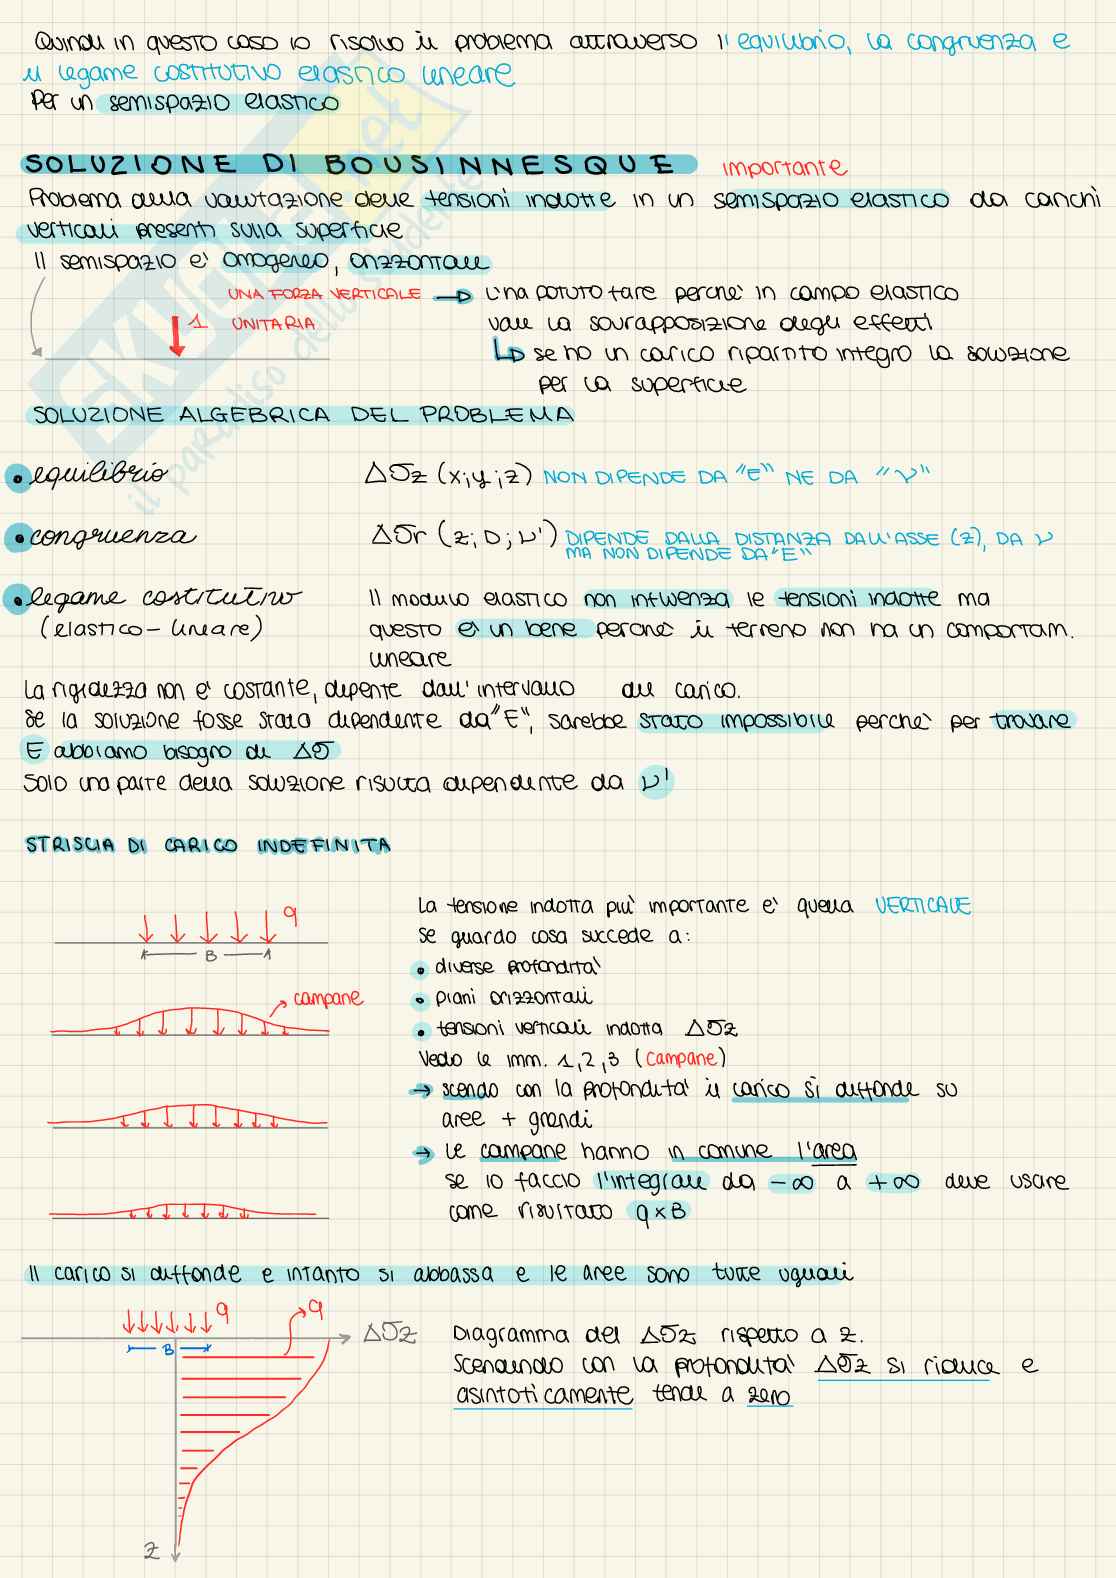 Quindi in questo caso io risolvo il problema attraverso l'equilibrio, la congruenza e
il legame costitutivo elastico lineare
Per un semispazio elastico
SOLUZIONE DI BOUSINNESQUE importante
Problema della valutazione delle tensioni indotte in un semispazio elastico da carichi
verticali presenti sulla superficie
Il semispazio e' omogeneo, orizzontale
UNA FORZA VERTICALE → L'ha potuto fare perche' in campo elastico
1 UNITARIA vale la sovrapposizione degli effetti
↳ se ho un carico ripartito integro la soluzione
per la superficie
SOLUZIONE ALGEBRICA DEL PROBLEMA
• equilibrio Δσz (x;y;z) NON DIPENDE DA "E" NE DA "ν"
• congruenza Δσr (z; D; ν') DIPENDE DALLA DISTANZA DALL'ASSE (z), DA ν
MA NON DIPENDE DA "E"
• legame costitutivo Il modulo elastico non influenza le tensioni indotte ma
(elastico-lineare) questo e' un bene perche' il terreno non ha un comportam.
lineare
La rigidezza non e' costante, depente dall'intervallo del carico.
Se la soluzione fosse stata dipendente da "E", sarebbe stato impossibile perche' per trovare
E abbiamo bisogno di Δσ
Solo una parte della soluzione risulta dipendente da ν'
STRISCIA DI CARICO INDEFINITA
q
B
campane
La tensione indotta piu' importante e' quella VERTICALE
Se guardo cosa succede a:
• diverse profondita'
• piani orizzontali
• tensioni verticali indotta Δσz
Vedo le imm. 1,2,3 (campane)
→ scendo con la profondita' il carico si diffonde su
aree + grandi
→ le campane hanno in comune l'area
se io faccio l'integrale da -∞ a +∞ deve usare
come risultato q×B
Il carico si diffonde e intanto si abbassa e le aree sono tutte uguali
q q
B Δσz
z
Diagramma del Δσz rispetto a z.
Scendendo con la profondita' Δσz si riduce e
asintoticamente tende a zero
SKUOLA.net
il paradiso dello studente